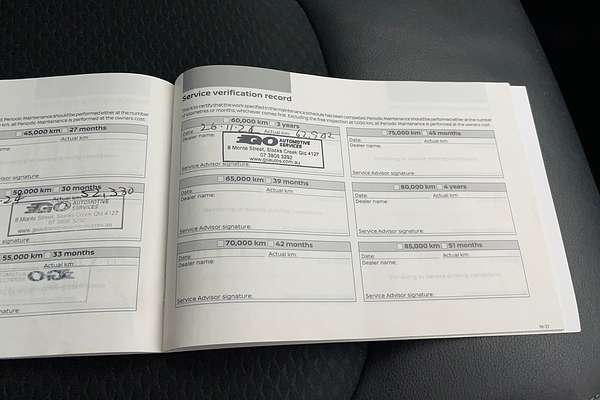 Periodic Maintenance should be performed either at the number
km, all Periodic Maintenance is performed at the owners cost.
45,000 km 27 months
Actual km:
signature:
50,000 km 30 months
Actual km: 52,330
GO AUTOMOTIVE SERVICES
8 Monte Street, Slacks Creek Qld 4127
07 3805 3292
signature:
55,000 km 33 months
Actual km:
signature:
Service verification record
This is to certify that the work specified in the maintenance schedule has been completed. Periodic Maintenance should be performed either at the number
of kilometres or months, whichever comes first. Excluding the free inspection at 1,000 km, all Periodic Maintenance is performed at the owners cost.
60,000 km 3 years
Date: Actual km:
Dealer name:
GO AUTOMOTIVE SERVICES
8 Monte Street, Slacks Creek Qld 4127
07 3805 3292
Service Advisor signature:
65,000 km 39 months
Date: Actual km:
Dealer name:
Service Advisor signature:
70,000 km 42 months
Date: Actual km:
Dealer name:
Service Advisor signature:
75,000 km 45 months
Date: Actual km:
Dealer name:
Service Advisor signature:
80,000 km 4 years
Date: Actual km:
Dealer name:
Service Advisor signature:
85,000 km 51 months
Date: Actual km:
Dealer name:
Service Advisor signature: